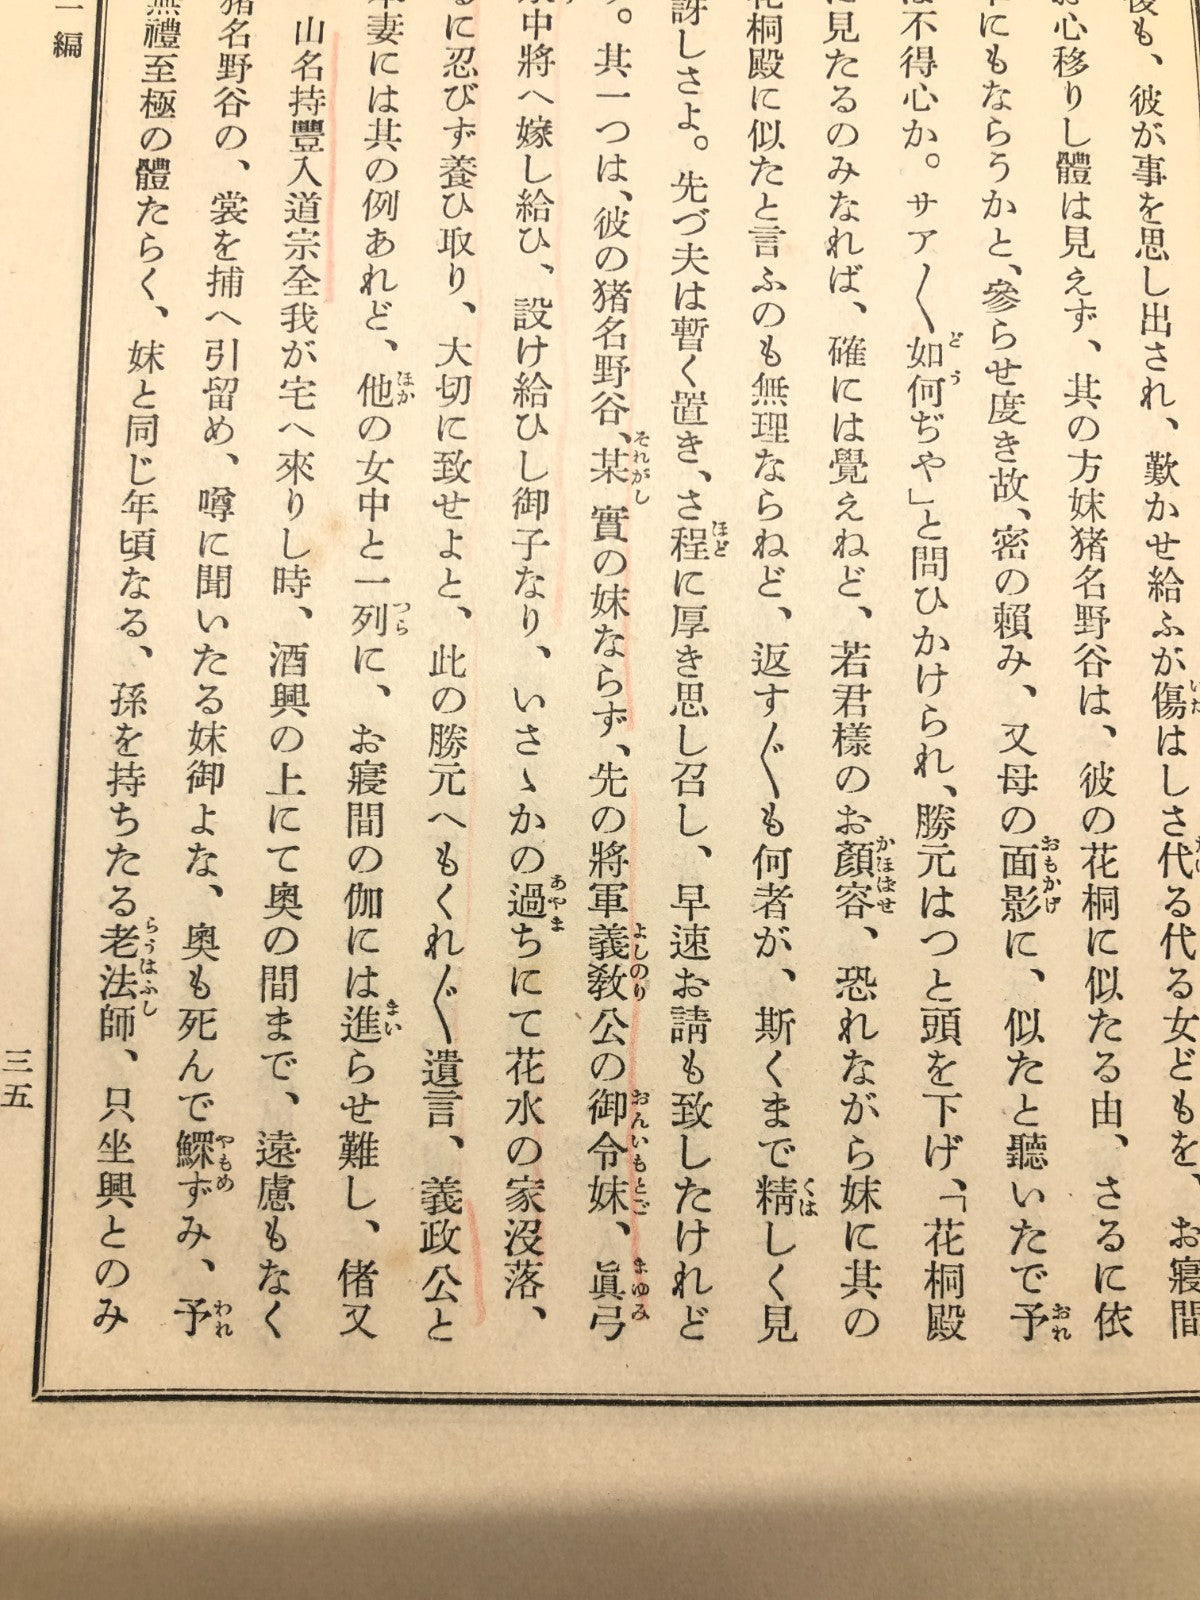 後も、彼が事を思し出され、歎かせ給ふが傷はしさ代る代る女どもを、お寢間
お心移りし體は見えず、其の方妹猪名野谷は、彼の花桐に似たる由、さるに依
にもならうかと、參らせ度き故、密の賴み、又母の面影に、似たと聽いたで予
は不得心か。サア〳〵如何ぢや」と問ひかけられ、勝元はつと頭を下げ、「花桐殿
に見たるのみなれば、確には覺えねど、若君樣のお顏容、恐れながら妹に其の
花桐殿に似たと言ふのも無理ならねど、返す〴〵も何者が、斯くまで精しく見
訝しさよ。先づ夫は暫く置き、さ程に厚き思し召し、早速お請も致したけれど
。其一つは、彼の猪名野谷、某實の妹ならず、先の將軍義敎公の御令妹、眞弓
中將へ嫁し給ひ、設け給ひし御子なり、いさゝかの過ちにて花水の家沒落、
るに忍びず養ひ取り、大切に致せよと、此の勝元へもくれ〴〵遺言、義政公と
妻には其の例あれど、他の女中と一列に、お寢間の伽には進らせ難し、偖又
山名持豐入道宗全我が宅へ來りし時、酒興の上にて奥の間まで、遠慮もなく
猪名野谷の、裳を捕へ引留め、噂に聞いたる妹御よな、奥も死んで鰥ずみ、予
無禮至極の體たらく、妹と同じ年頃なる、孫を持ちたる老法師、只坐興とのみ
編
三五